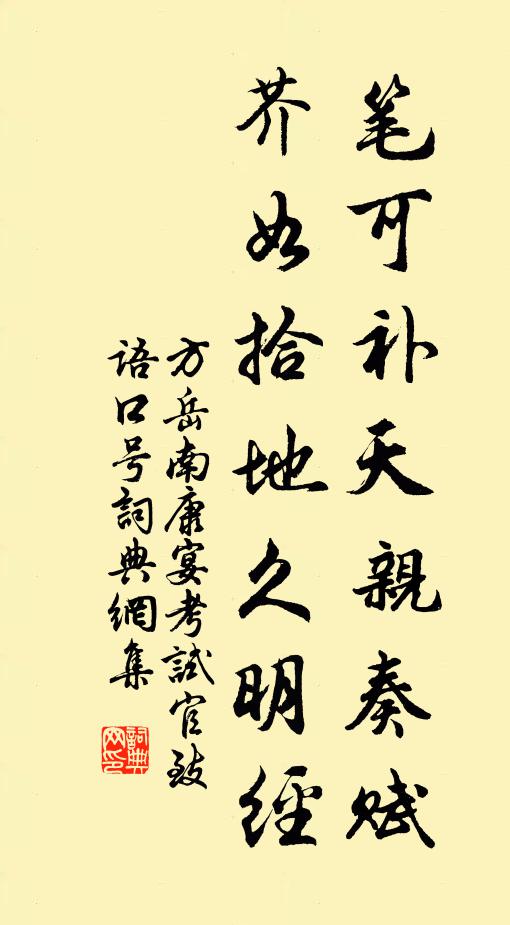 笔可补天親奏赋
芥如拾地久明經
方岳南康宴考試官致
语口号詞典網集
詞典
网印